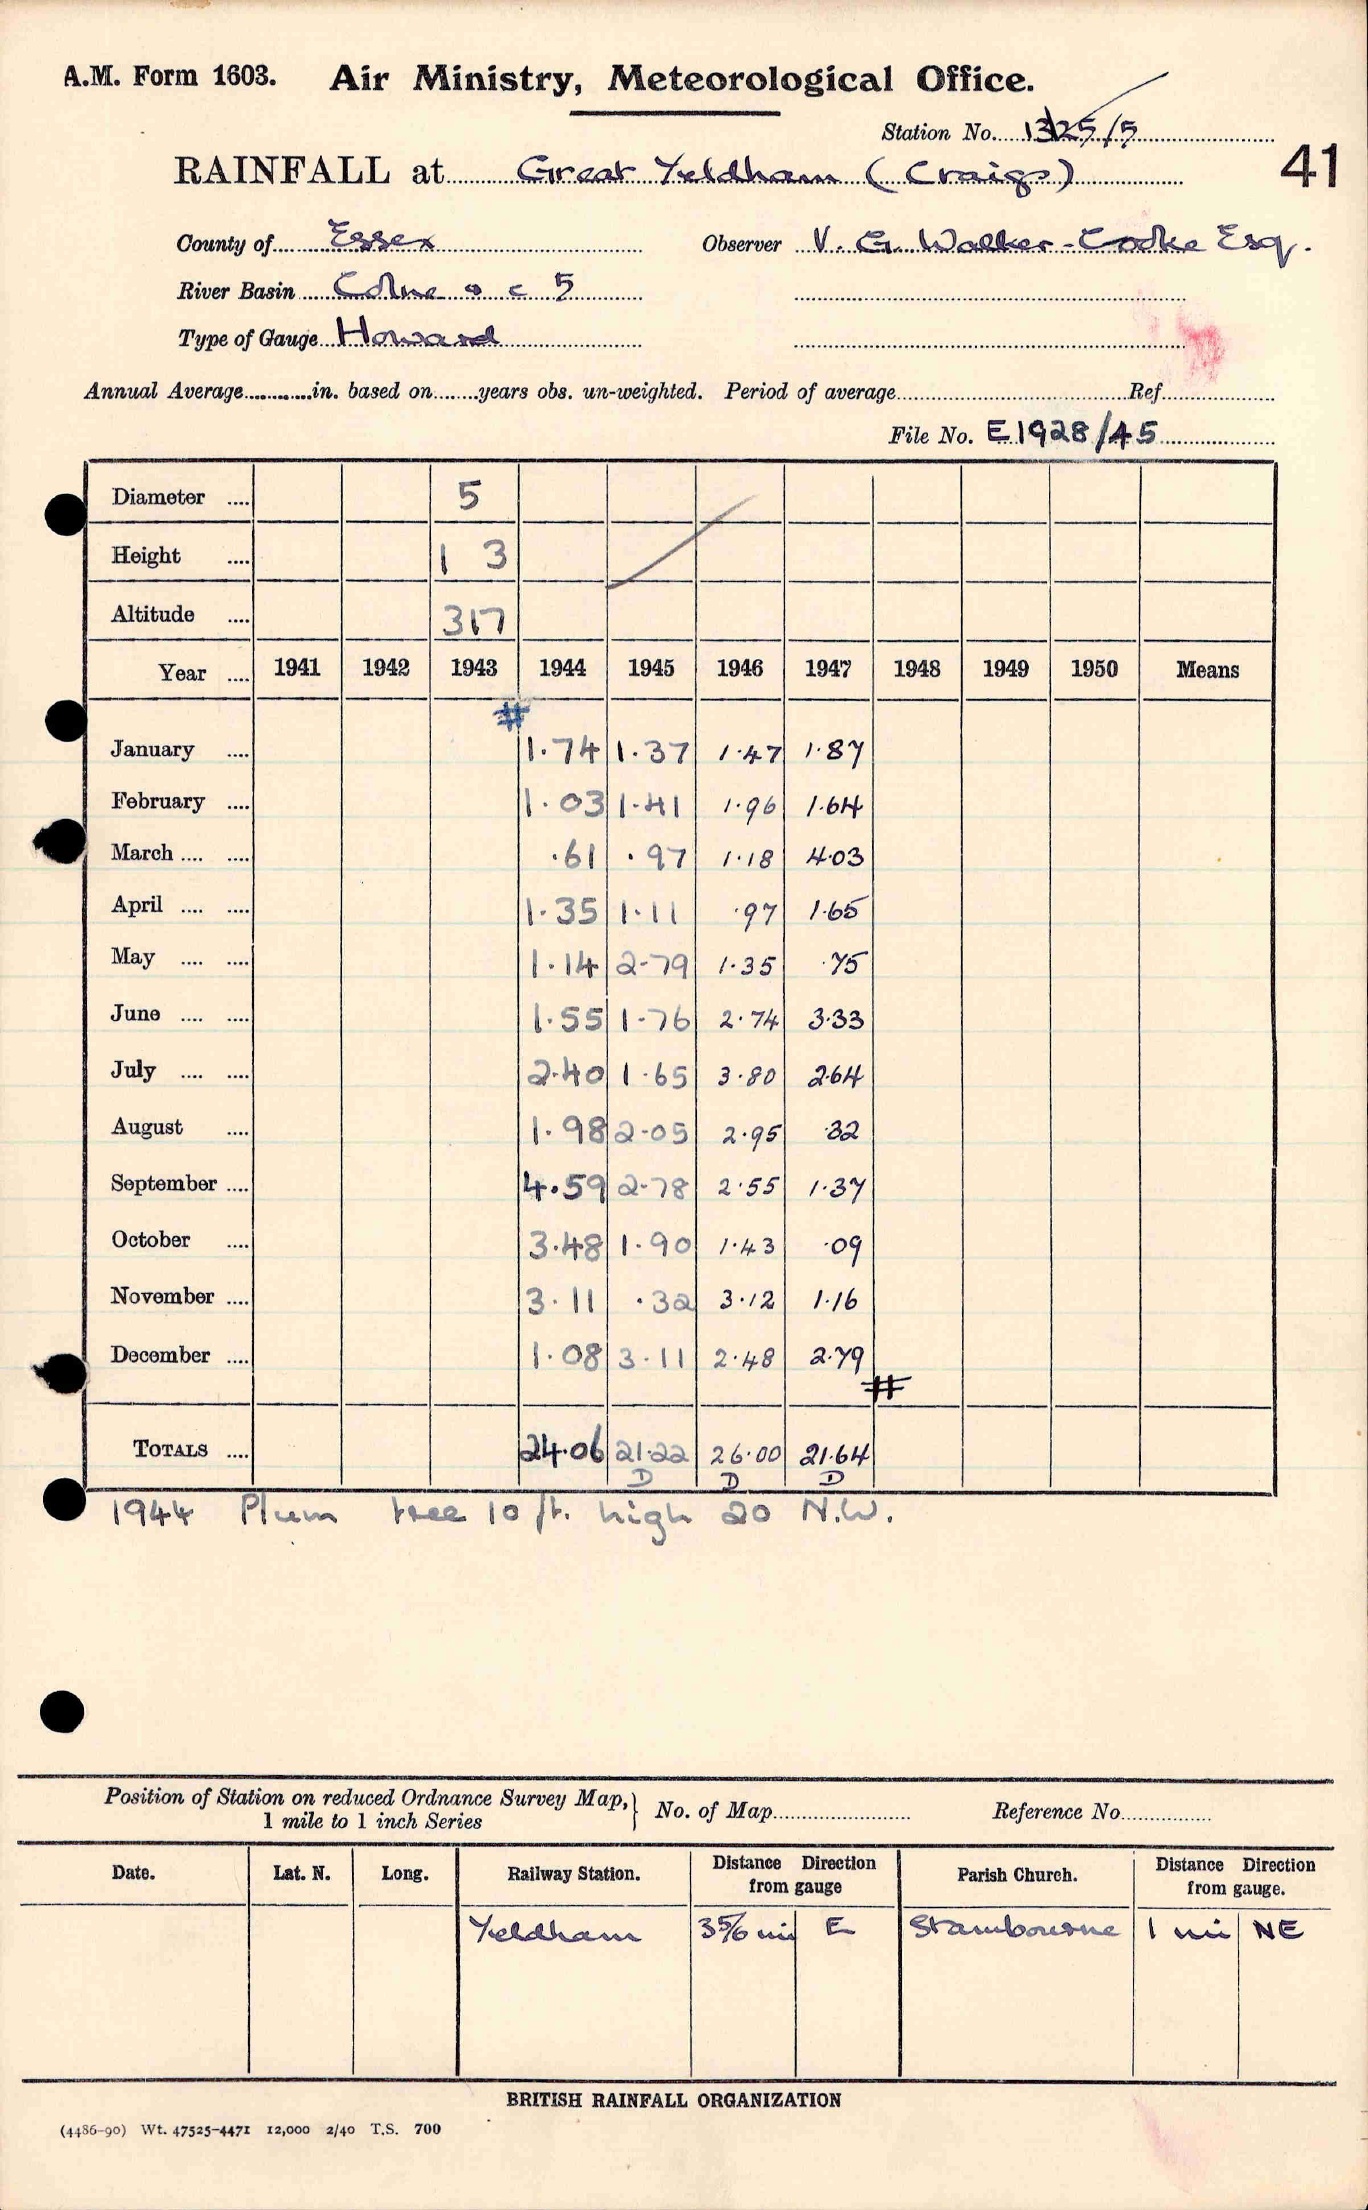 A.M. Form 1603. Air Ministry, Meteorological Office.
Station No. 1325/5
41
RAINFALL at Great Yeldham (Craigs)
County of Essex Observer V. G. Walker-Cooke Esq.
River Basin Colne a c 5
Type of Gauge Howard
Annual Average............in. based on........years obs. un-weighted. Period of average.............Ref.............
File No. E1928/45
Diameter .... 5
Height .... 1 3
Altitude .... 317
Year .... 1941 1942 1943 1944 1945 1946 1947 1948 1949 1950 Means
#
January .... 1.74 1.37 1.47 1.87
February .... 1.03 1.41 1.96 1.64
March .... .... .61 .97 1.18 4.03
April .... .... 1.35 1.11 .97 1.65
May .... .... 1.14 2.79 1.35 .75
June .... .... 1.55 1.76 2.74 3.33
July .... .... 2.40 1.65 3.80 2.64
August .... 1.98 2.05 2.95 .32
September .... 4.59 2.78 2.55 1.37
October .... 3.48 1.90 1.43 .09
November .... 3.11 .32 3.12 1.16
December .... 1.08 3.11 2.48 2.79
#
TOTALS .... 24.06 21.22 26.00 21.64
D D D
1944 Plum tree 10 ft. high 20 N.W.
Position of Station on reduced Ordnance Survey Map, 1 mile to 1 inch Series } No. of Map............ Reference No............
Date. Lat. N. Long. Railway Station. Distance Direction from gauge Parish Church. Distance Direction from gauge.
Yeldham 3 5/6 mi E Stambourne 1 mi NE
BRITISH RAINFALL ORGANIZATION
(4486-90) Wt. 47525-4471 12,000 2/40 T.S. 700